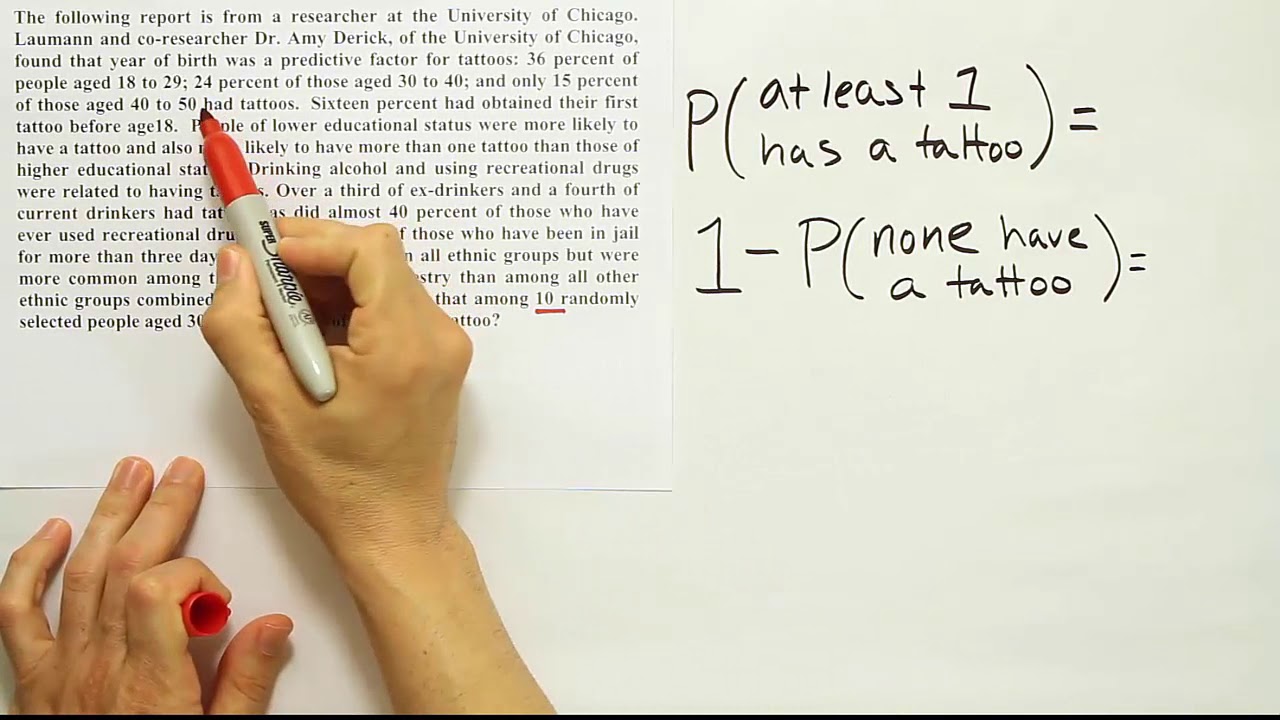 The following report is from a researcher at the University of Chicago.
Laumann and co-researcher Dr. Amy Derick, of the University of Chicago,
found that year of birth was a predictive factor for tattoos: 36 percent of
people aged 18 to 29; 24 percent of those aged 30 to 40; and only 15 percent
of those aged 40 to 50 had tattoos. Sixteen percent had obtained their first
tattoo before age18. of lower educational status were more likely to
have a tattoo and also likely to have more than one tattoo than those of
higher educational Drinking alcohol and using recreational drugs
were related to having Over a third of ex-drinkers and a fourth of
current drinkers had as did almost 40 percent of those who have
ever used recreational of those who have been in jail
for more than three all ethnic groups but were
more common among than among all other
ethnic groups combined that among 10 randomly
selected people aged
P(at least 1
has a tattoo) =
1 - P(none have
a tattoo) =
SUPER
Sharpie